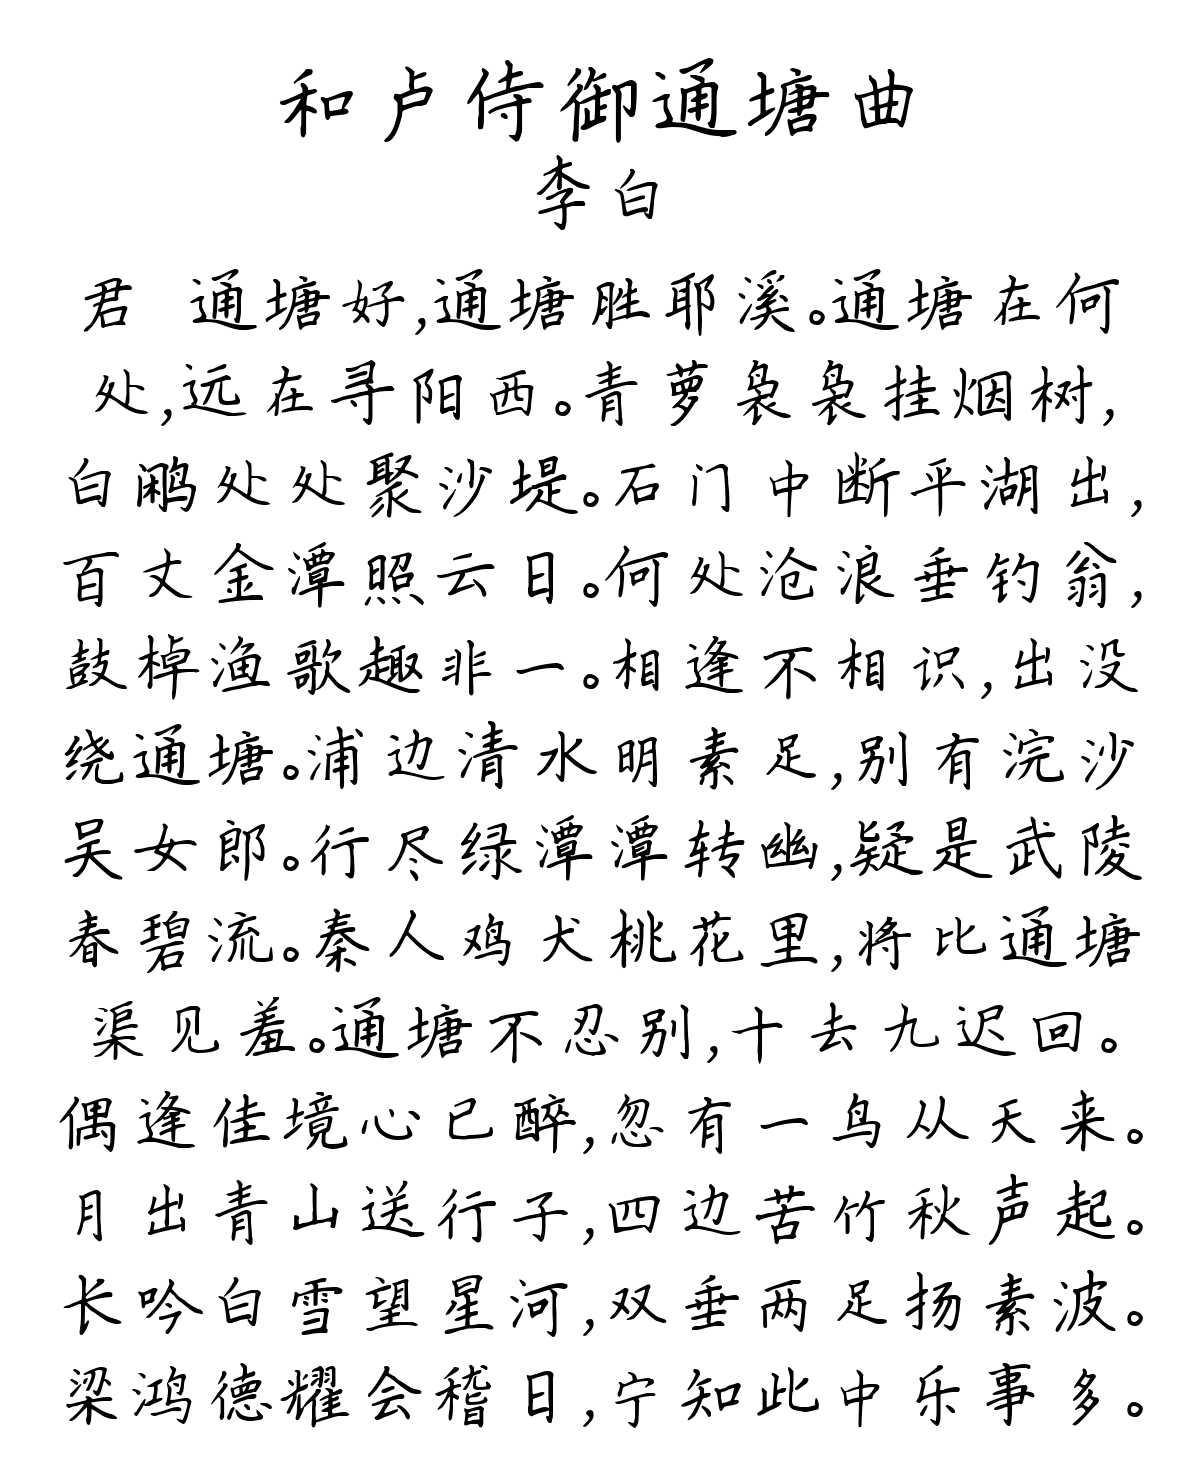 和卢侍御通塘曲
李白
君 通塘好,通塘胜耶溪。通塘在何
处,远在寻阳西。青萝袅袅挂烟树,
白鹇处处聚沙堤。石门中断平湖出,
百丈金潭照云日。何处沧浪垂钓翁,
鼓棹渔歌趣非一。相逢不相识,出没
绕通塘。浦边清水明素足,别有浣沙
吴女郎。行尽绿潭潭转幽,疑是武陵
春碧流。秦人鸡犬桃花里,将比通塘
渠见羞。通塘不忍别,十去九迟回。
偶逢佳境心已醉,忽有一鸟从天来。
月出青山送行子,四边苦竹秋声起。
长吟白雪望星河,双垂两足扬素波。
梁鸿德耀会稽日,宁知此中乐事多。